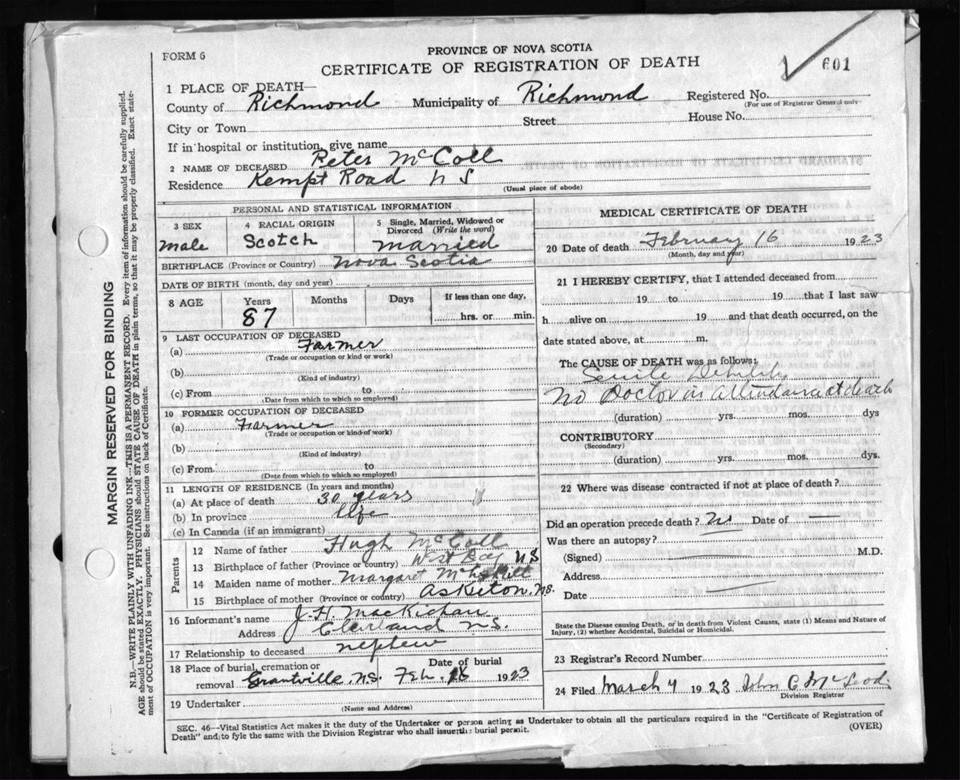 FORM 6
PROVINCE OF NOVA SCOTIA
CERTIFICATE OF REGISTRATION OF DEATH
601
1 PLACE OF DEATH—
County of Richmond Municipality of Richmond Registered No.
(For use of Registrar General only
City or Town Street House No.
If in hospital or institution, give name
2 NAME OF DECEASED Peter McColl
Residence Kempt Road N S
(Usual place of abode)
PERSONAL AND STATISTICAL INFORMATION
3 SEX 4 RACIAL ORIGIN 5 Single, Married, Widowed or Divorced (Write the word)
male Scotch married
BIRTHPLACE (Province or Country) Nova Scotia
DATE OF BIRTH (month, day and year)
8 AGE Years Months Days If less than one day,
87 hrs. or min.
9 LAST OCCUPATION OF DECEASED
(a) Farmer
(Trade or occupation or kind or work)
(b)
(Kind of industry)
(c) From to
(Date from which to which so employed)
10 FORMER OCCUPATION OF DECEASED
(a) Farmer
(Trade or occupation or kind of work)
(b)
(Kind of industry)
(c) From to
(Date from which to which so employed)
11 LENGTH OF RESIDENCE (In years and months)
(a) At place of death 30 years
(b) In province life
(c) In Canada (if an immigrant)
Parents
12 Name of father Hugh McColl
13 Birthplace of father (Province or country) N.S
14 Maiden name of mother Margaret
15 Birthplace of mother (Province or country)
16 Informant's name J. H. MacKichan
Address Cleveland N.S.
17 Relationship to deceased nephew
18 Place of burial, cremation or removal Date of burial
Grantville N.S. Feb. 1923
19 Undertaker
(Name and Address)
MEDICAL CERTIFICATE OF DEATH
20 Date of death February 16 1923
(Month, day and year)
21 I HEREBY CERTIFY, that I attended deceased from
19 to 19 that I last saw
h alive on 19 and that death occurred, on the
date stated above, at m.
The CAUSE OF DEATH was as follows:
Senile Debility
No Doctor in attendance at death
(duration) yrs. mos. dys
CONTRIBUTORY
(Secondary)
(duration) yrs. mos. dys.
22 Where was disease contracted if not at place of death?
Did an operation precede death? No Date of —
Was there an autopsy?
(Signed) M.D.
Address
Date
State the Disease causing Death, or in death from Violent Causes, state (1) Means and Nature of
Injury, (2) whether Accidental, Suicidal or Homicidal.
23 Registrar's Record Number
24 Filed March 4 1923 John C McLeod
Division Registrar
SEC. 46—Vital Statistics Act makes it the duty of the Undertaker or person acting as Undertaker to obtain all the particulars required in the "Certificate of Registration of
Death" and to fyle the same with the Division Registrar who shall issue the burial permit.
(OVER)
MARGIN RESERVED FOR BINDING
N.B.—WRITE PLAINLY WITH UNFADING INK—THIS IS A PERMANENT RECORD. Every item of information should be carefully supplied.
AGE should be stated EXACTLY. PHYSICIANS should STATE CAUSE OF DEATH in plain terms, so that it may be properly classified. Exact statement of OCCUPATION is very important. See instructions on back of Certificate.